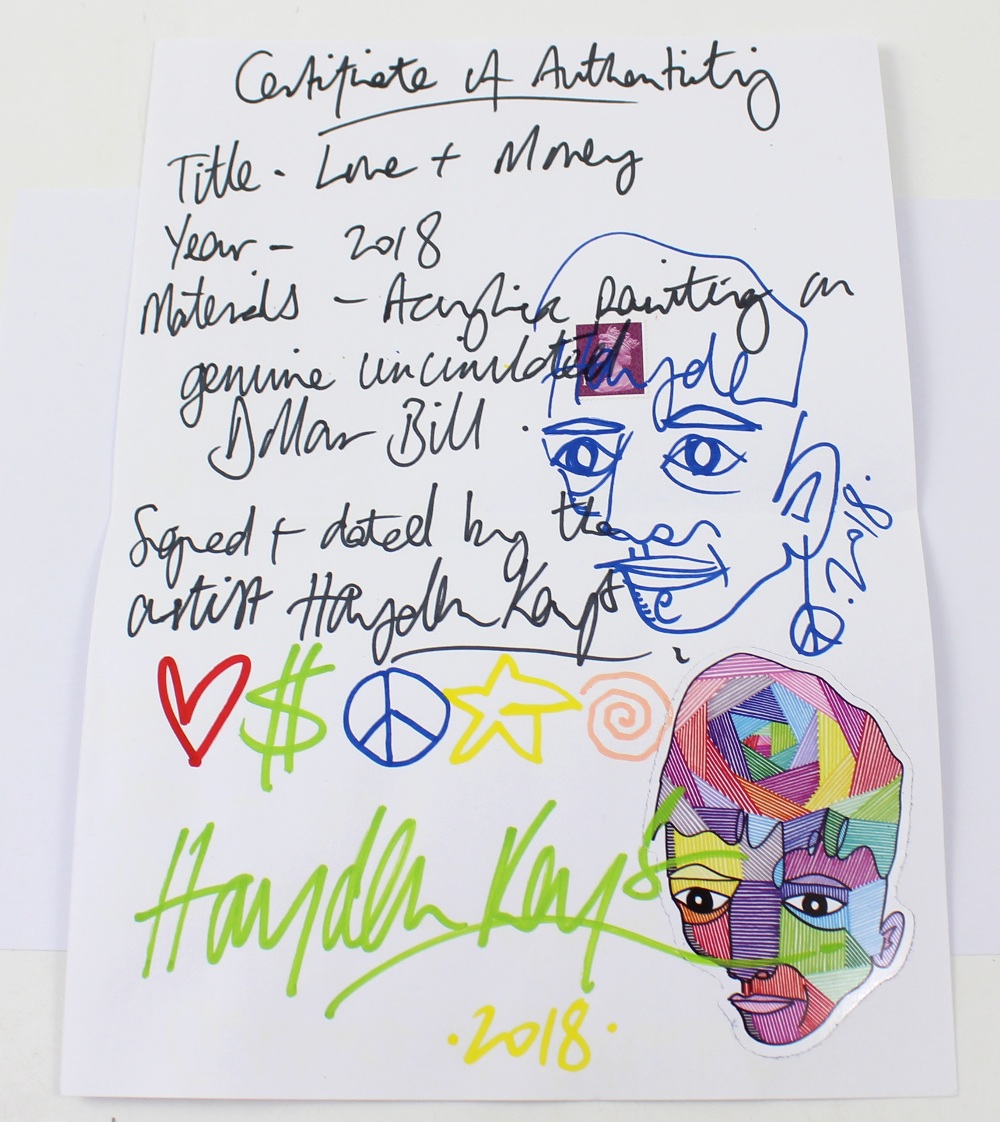 Certificate of Authenticity
Title - Love + Money
Year - 2018
Materials - Acrylic painting on
genuine uncirculated
Dollar Bill.
Signed + dated by the
artist Hayden Keys
Hayde
2018.
$
Hayden Keys
·2018·